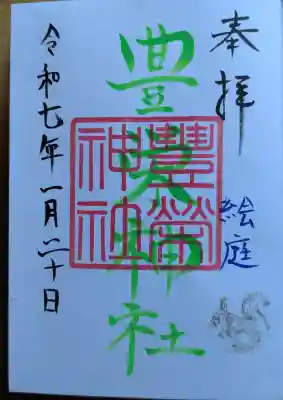 奉拝
絵庭
豊栄神社
豐榮
神社
令和七年一月二十日